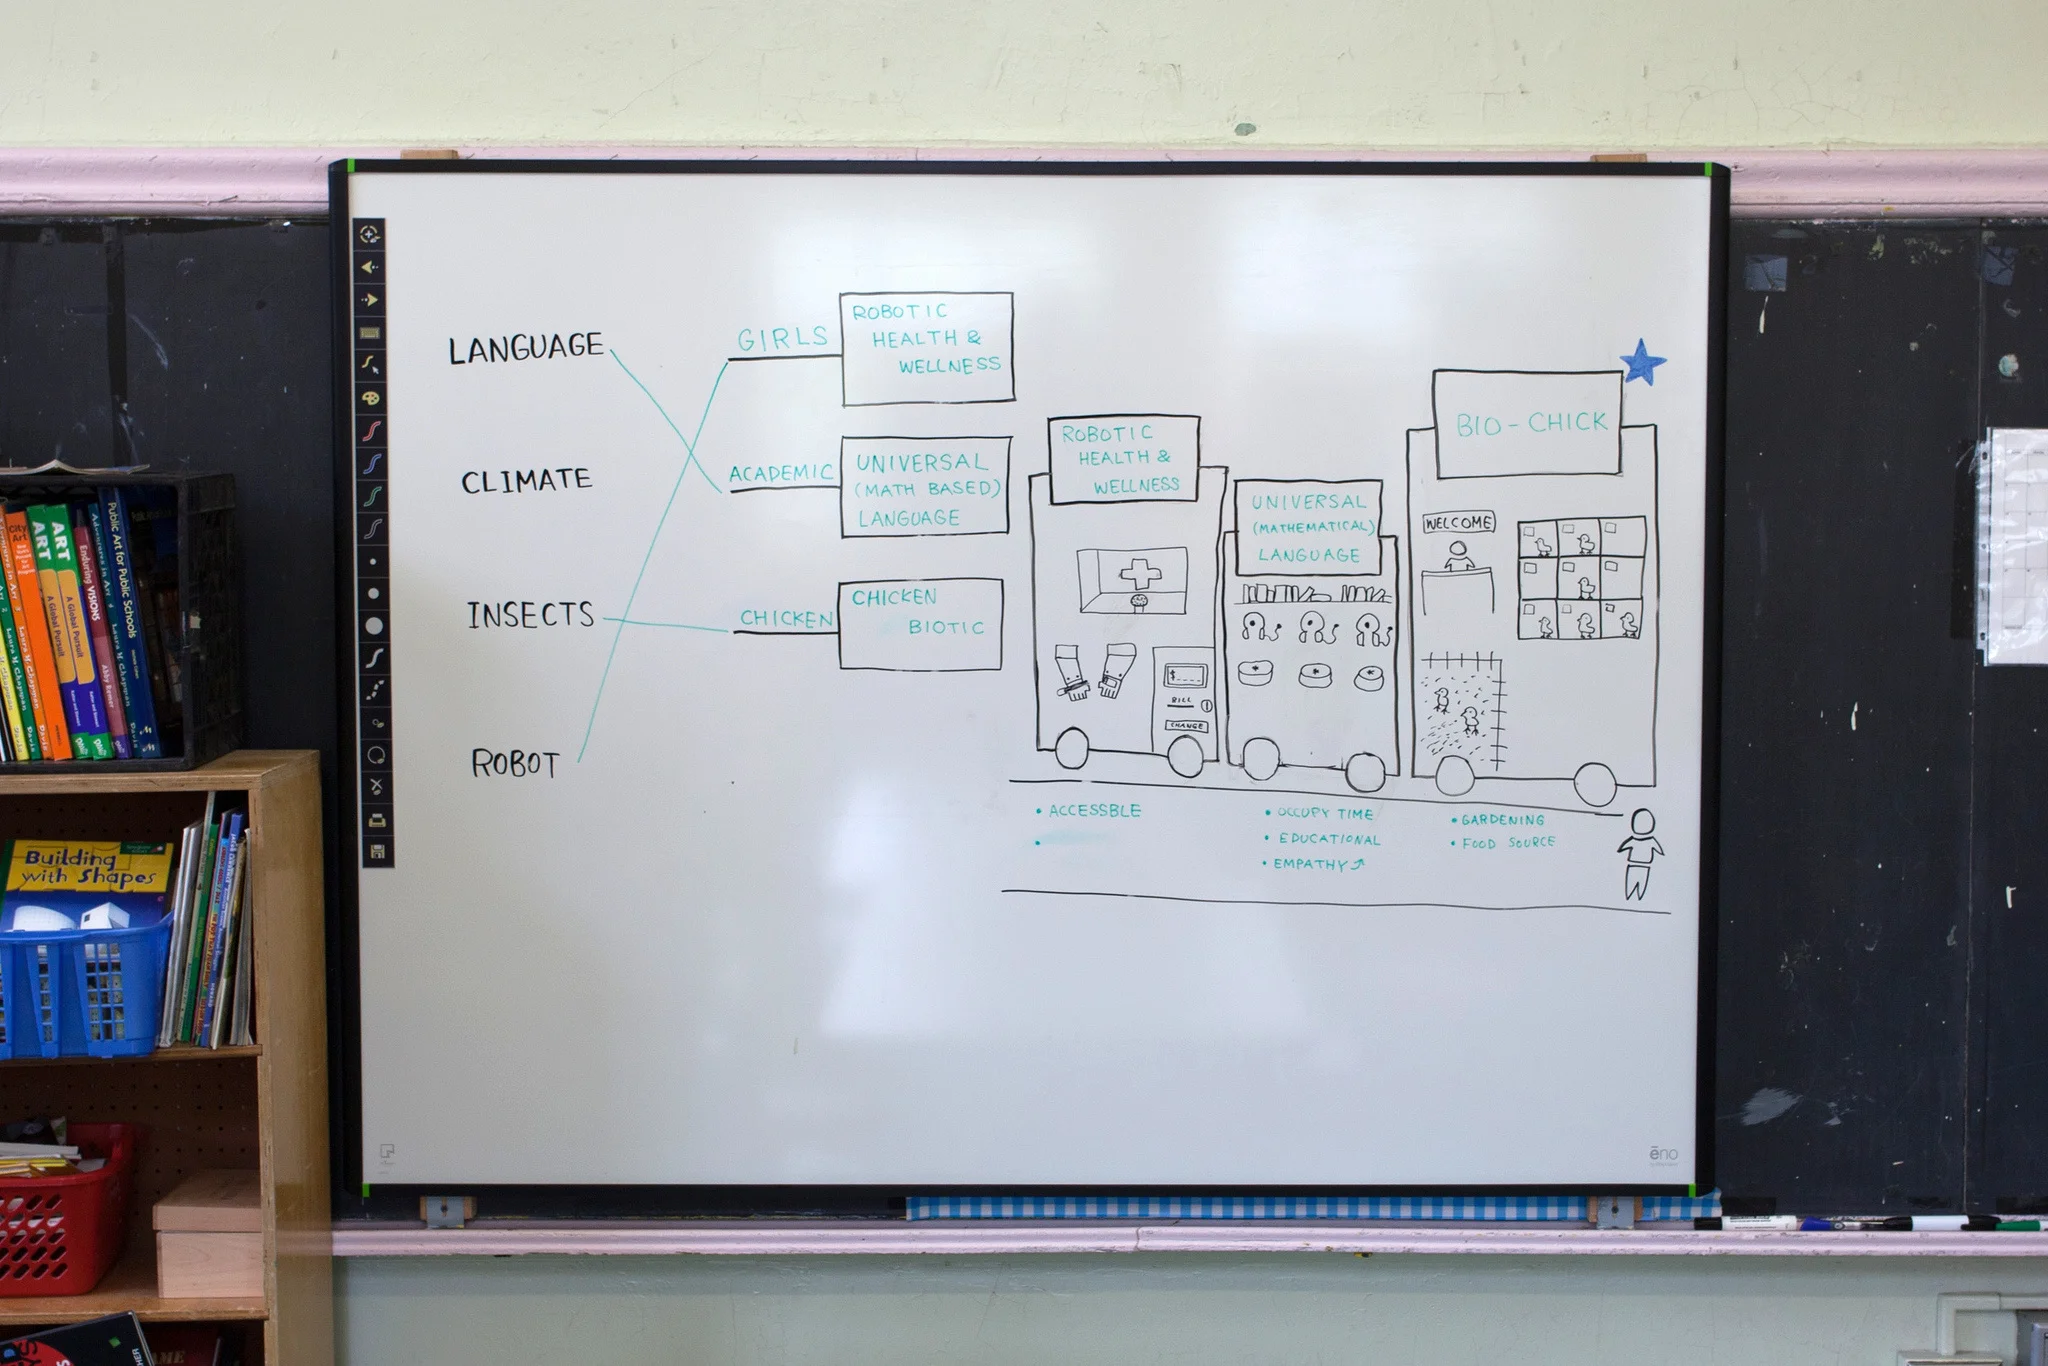 LANGUAGE
CLIMATE
INSECTS
ROBOT
GIRLS
ROBOTIC
HEALTH &
WELLNESS
ACADEMIC
UNIVERSAL
(MATH BASED)
LANGUAGE
CHICKEN
CHICKEN
BIOTIC
ROBOTIC
HEALTH &
WELLNESS
$
BILL
CHANGE
• ACCESSBLE
•
UNIVERSAL
(MATHEMATICAL)
LANGUAGE
• OCCUPY TIME
• EDUCATIONAL
• EMPATHY
BIO-CHICK
WELCOME
• GARDENING
• FOOD SOURCE
ēno
City
Art
ART
A Global Pursuit
ART
A Global Pursuit
Enduring VISIONS
Abby Remer
Adventures in Art
Laura H. Chapman
Davis
Public Art for Public Schools
Building
with Shapes